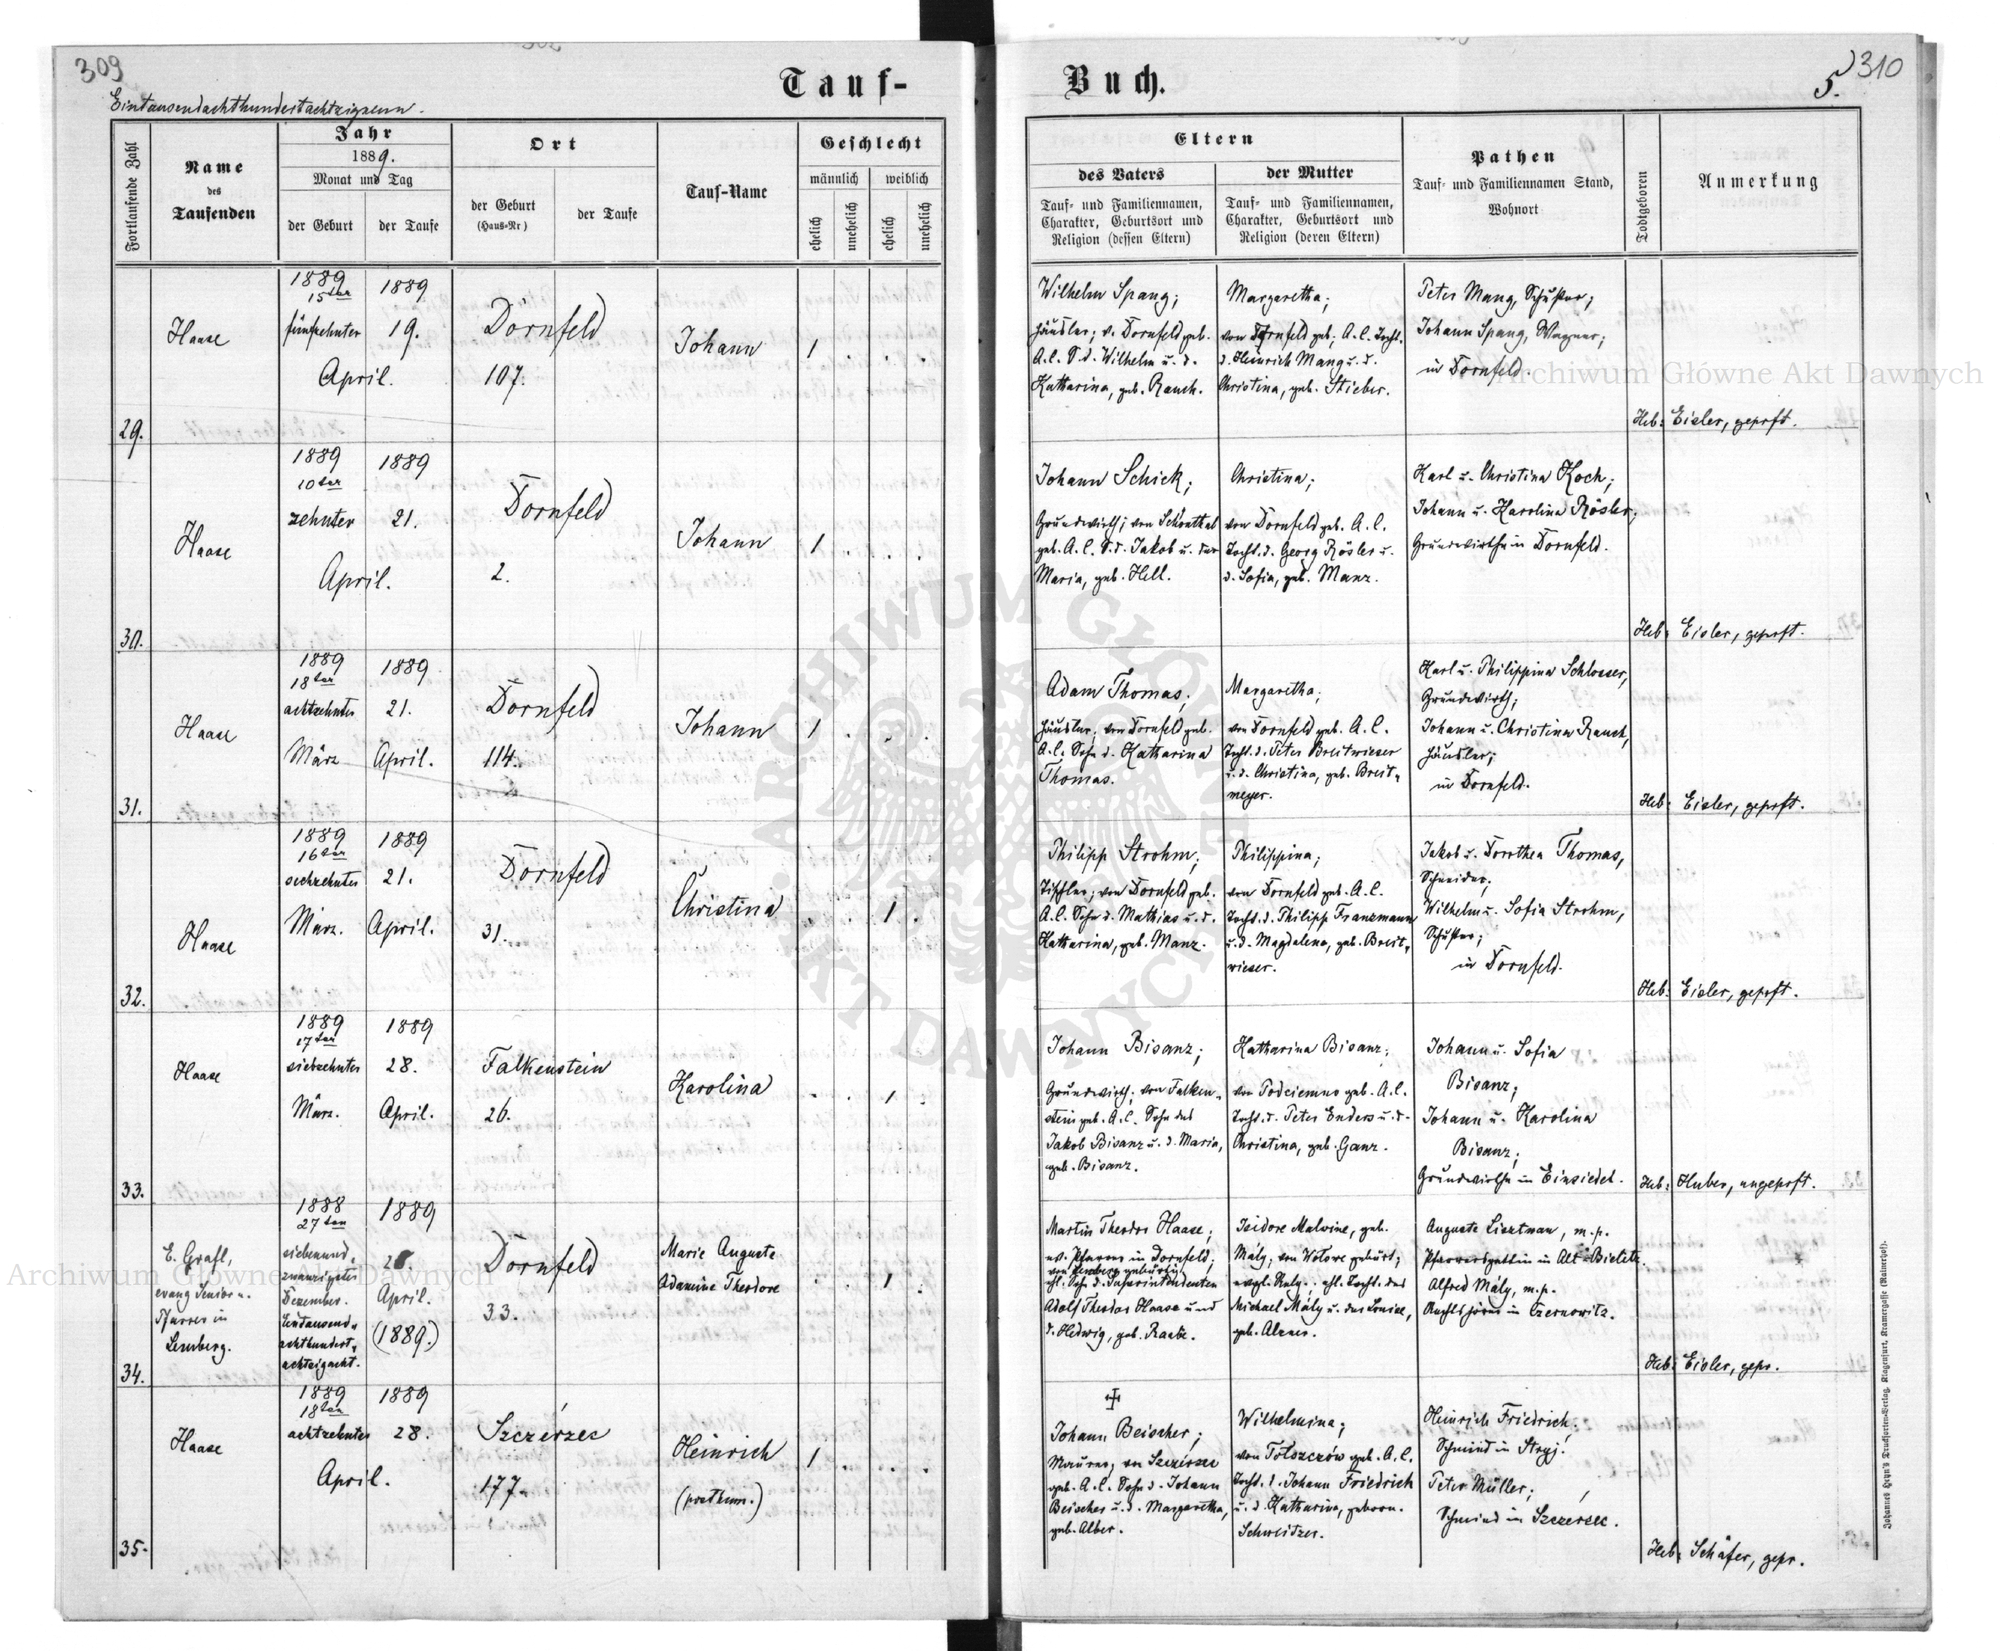 309
310
5.
Tauf-
Buch.
Eintausendachthundertachtzigneun.
Fortlaufende Zahl
Name
des
Taufenden
Jahr
1889.
Monat und Tag
der Geburt
der Taufe
Ort
der Geburt
(Haus-Nr)
der Taufe
Tauf-Name
Geschlecht
männlich
weiblich
ehelich
unehelich
ehelich
unehelich
Eltern
des Vaters
Tauf- und Familiennamen,
Charakter, Geburtsort und
Religion (dessen Eltern)
der Mutter
Tauf- und Familiennamen,
Charakter, Geburtsort und
Religion (deren Eltern)
Pathen
Tauf- und Familiennamen Stand,
Wohnort
Todtgeboren
Anmerkung
29.
Haase
1889
15ten
fünfzehnter
1889
19.
April.
Dornfeld
107.
Johann
1
Wilhelm Spang;
Häusler; v. Dornfeld geb.
A.C. S.d. Wilhelm u. d.
Katharina, geb. Rauch.
Margaretha;
von Dornfeld geb; A.C. Tocht.
d. Heinrich Mang u. d.
Christina, geb. Stieber.
Peter Mang, Schuster;
Johann Spang, Wagner;
in Dornfeld.
Heb: Eisler, geprft.
30.
Haase
1889
10ten
zehnter
1889
21.
April.
Dornfeld
2.
Johann
1
Johann Schick;
Grundwirth; von Schönthal
geb. A.C. S.d. Jakob u. der
Maria, geb. Hell.
Christina;
von Dornfeld geb. A.C.
Tocht. d. Georg Rösler u.
d. Sofia, geb. Manz.
Karl u. Christina Koch;
Johann u. Karolina Rösler;
Grundwirthe in Dornfeld.
Heb: Eisler, geprft.
31.
Haase
1889
18ten
achtzehnter
März
1889
21.
April.
Dornfeld
114.
Johann
1
Adam Thomas;
Häusler; von Dornfeld geb.
A.C. Sohn d. Katharina
Thomas.
Margaretha;
von Dornfeld geb. A.C.
Tocht. d. Peter Breitwieser
u. d. Christina, geb. Breit-
meyer.
Karl u. Philippina Schlosser,
Grundwirth;
Johann u. Christina Rauch,
Häusler;
in Dornfeld.
Heb: Eisler, geprft.
32.
Haase
1889
16ten
sechzehnter
März.
1889
21.
April.
Dornfeld
31.
Christina
1
Philipp Strohm;
Tischler; von Dornfeld geb.
A.C. Sohn d. Mathias u. d.
Katharina, geb. Manz.
Philippina;
von Dornfeld geb. A.C.
Tocht. d. Philipp Franzmann
u. d. Magdalena, geb. Breit-
wieser.
Jakob u. Dorothea Thomas,
Schneider;
Wilhelm u. Sofia Strohm,
Schuster;
in Dornfeld.
Heb: Eisler, geprft.
33.
Haase
1889
17ten
siebzehnter
März.
1889
28.
April.
Falkenstein
26.
Karolina
1
Johann Bisanz;
Grundwirth; von Falken-
stein geb. A.C. Sohn des
Jakob Bisanz u. d. Maria,
geb. Bisanz.
Katharina Bisanz;
von Podciemno geb. A.C.
Tocht. d. Peter Enders u. d.
Christina, geb. Ganz.
Johann u. Sofia
Bisanz;
Johann u. Karolina
Bisanz;
Grundwirthe in Einsiedel.
Heb: Huber, ungeprft.
34.
E. Grafl,
evang. Senior u.
Pfarrer in
Lemberg.
1888
27ten
siebenund-
zwanzigster
Dezember.
Eintausend-
achthundert-
achtzigacht.
1889
April.
(1889.)
Dornfeld
33.
Marie Auguste
Theodore
1
Martin Theodor Haase;
ev. Pfarrer in Dornfeld;
von Lemberg gebürtig;
ehl. Sohn d. Superintendenten
Adolf Theodor Haase und
d. Hedwig, geb. Raabe.
Isidore Malwine, geb.
Mály; von Wolove gebürt;
evgl. Relg.; ehl. Tocht. des
Michael Mály u. der Louise,
geb. Alzner.
Auguste Lisztman, m.p.
Pfarrersgattin in Alt-Bielitz.
Alfred Mály, m.p.
Rechtshörer in Czernowitz.
Heb: Eisler, gepr.
35.
Haase
1889
18ten
achtzehnter
1889
28.
April.
Szczérzec
177.
Heinrich
(posthum.)
1
Johann Beischer;
Maurer; von Szczérzec
geb. A.C. Sohn d. Johann
Beischer u. d. Margaretha,
geb. Alber.
Wilhelmina;
von Tolszczów geb. A.C.
Tocht. d. Johann Friedrich
u. d. Katharina, geborn.
Schweitzer.
Heinrich Friedrich.
Schmied in Stryj.
Peter Müller;
Schmied in Szczérzec.
Heb: Schäfer, gepr.
Johannes Heyn's Drucksorten-Verlag, Klagenfurt, Kramergasse (Rainerhof).
Archiwum Główne Akt Dawnych
Archiwum Główne Akt Dawnych
ARCHIWUM GŁÓWNE AKT DAWNYCH